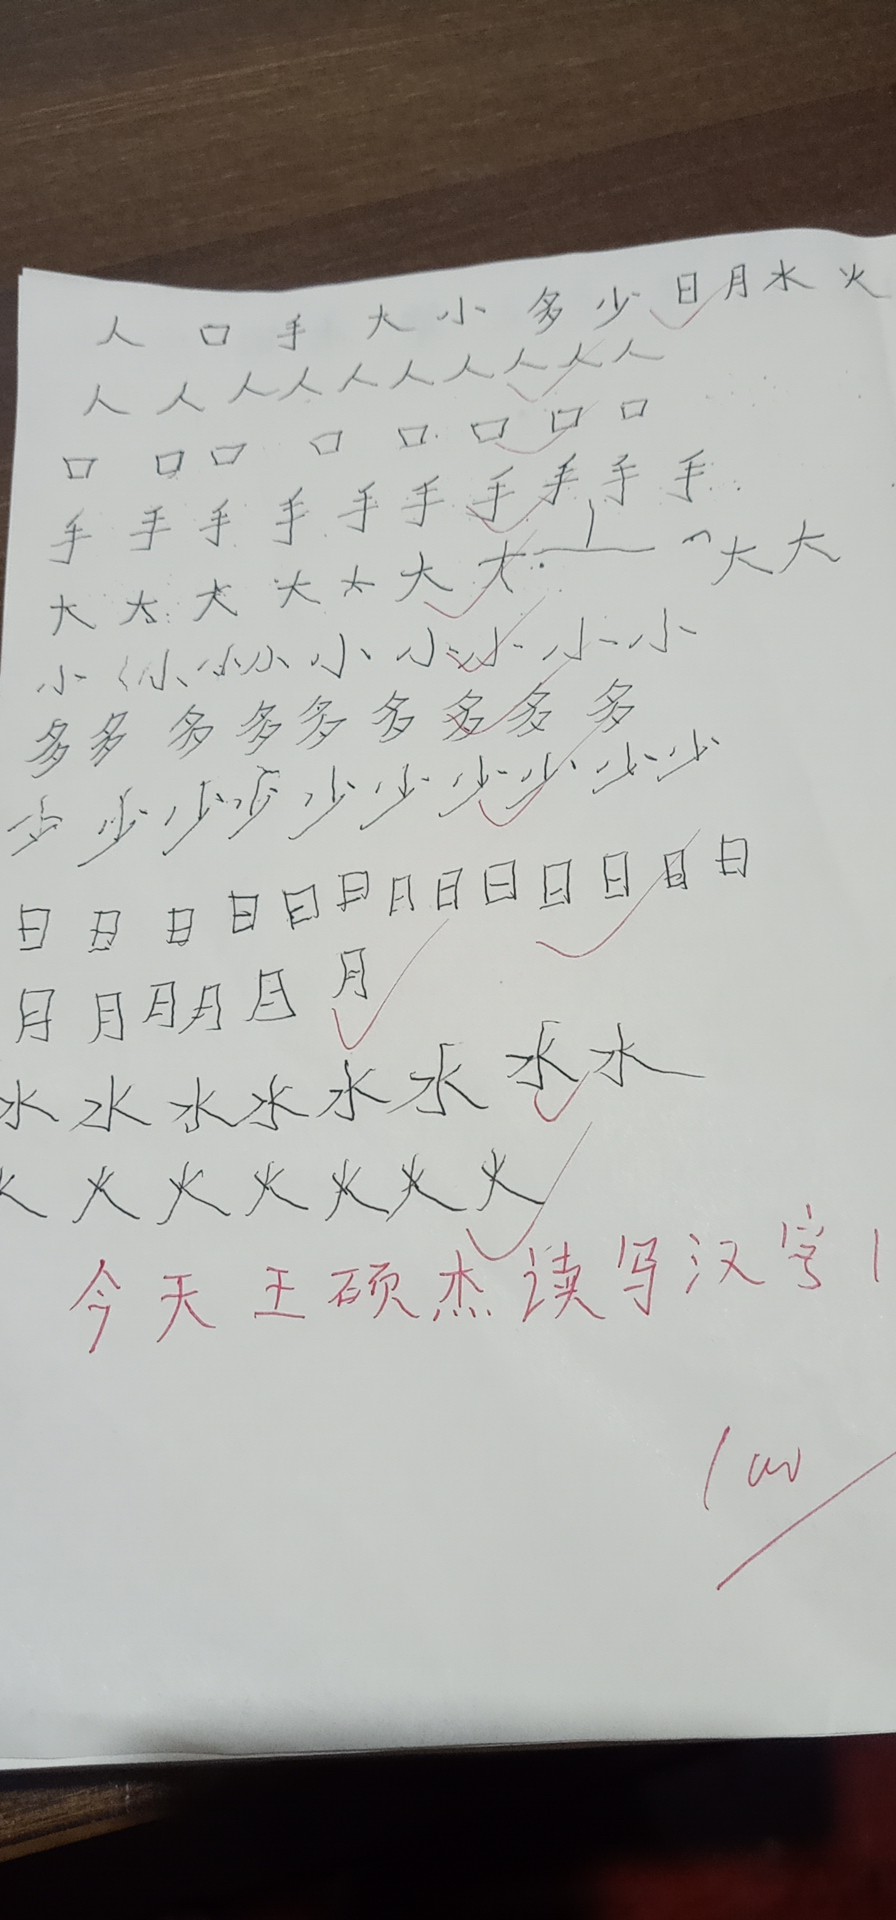 人 口 手 大 小 多 少 日 月 水 火
人 人 人 人 人 人 人 人 人 人
口 口 口 口 口 口 口 口
手 手 手 手 手 手 手 手 手 手
大 大 大 大 大 大 大 大 大
小 小 小 小 小 小 小 小 小
多 多 多 多 多 多 多 多 多
少 少 少 少 少 少 少 少 少 少
日 日 日 日 日 日 日 日 日 日 日 日 日
月 月 月 月 月 月
水 水 水 水 水 水 水 水
火 火 火 火 火 火 火
今天王硕杰读写汉字1
100